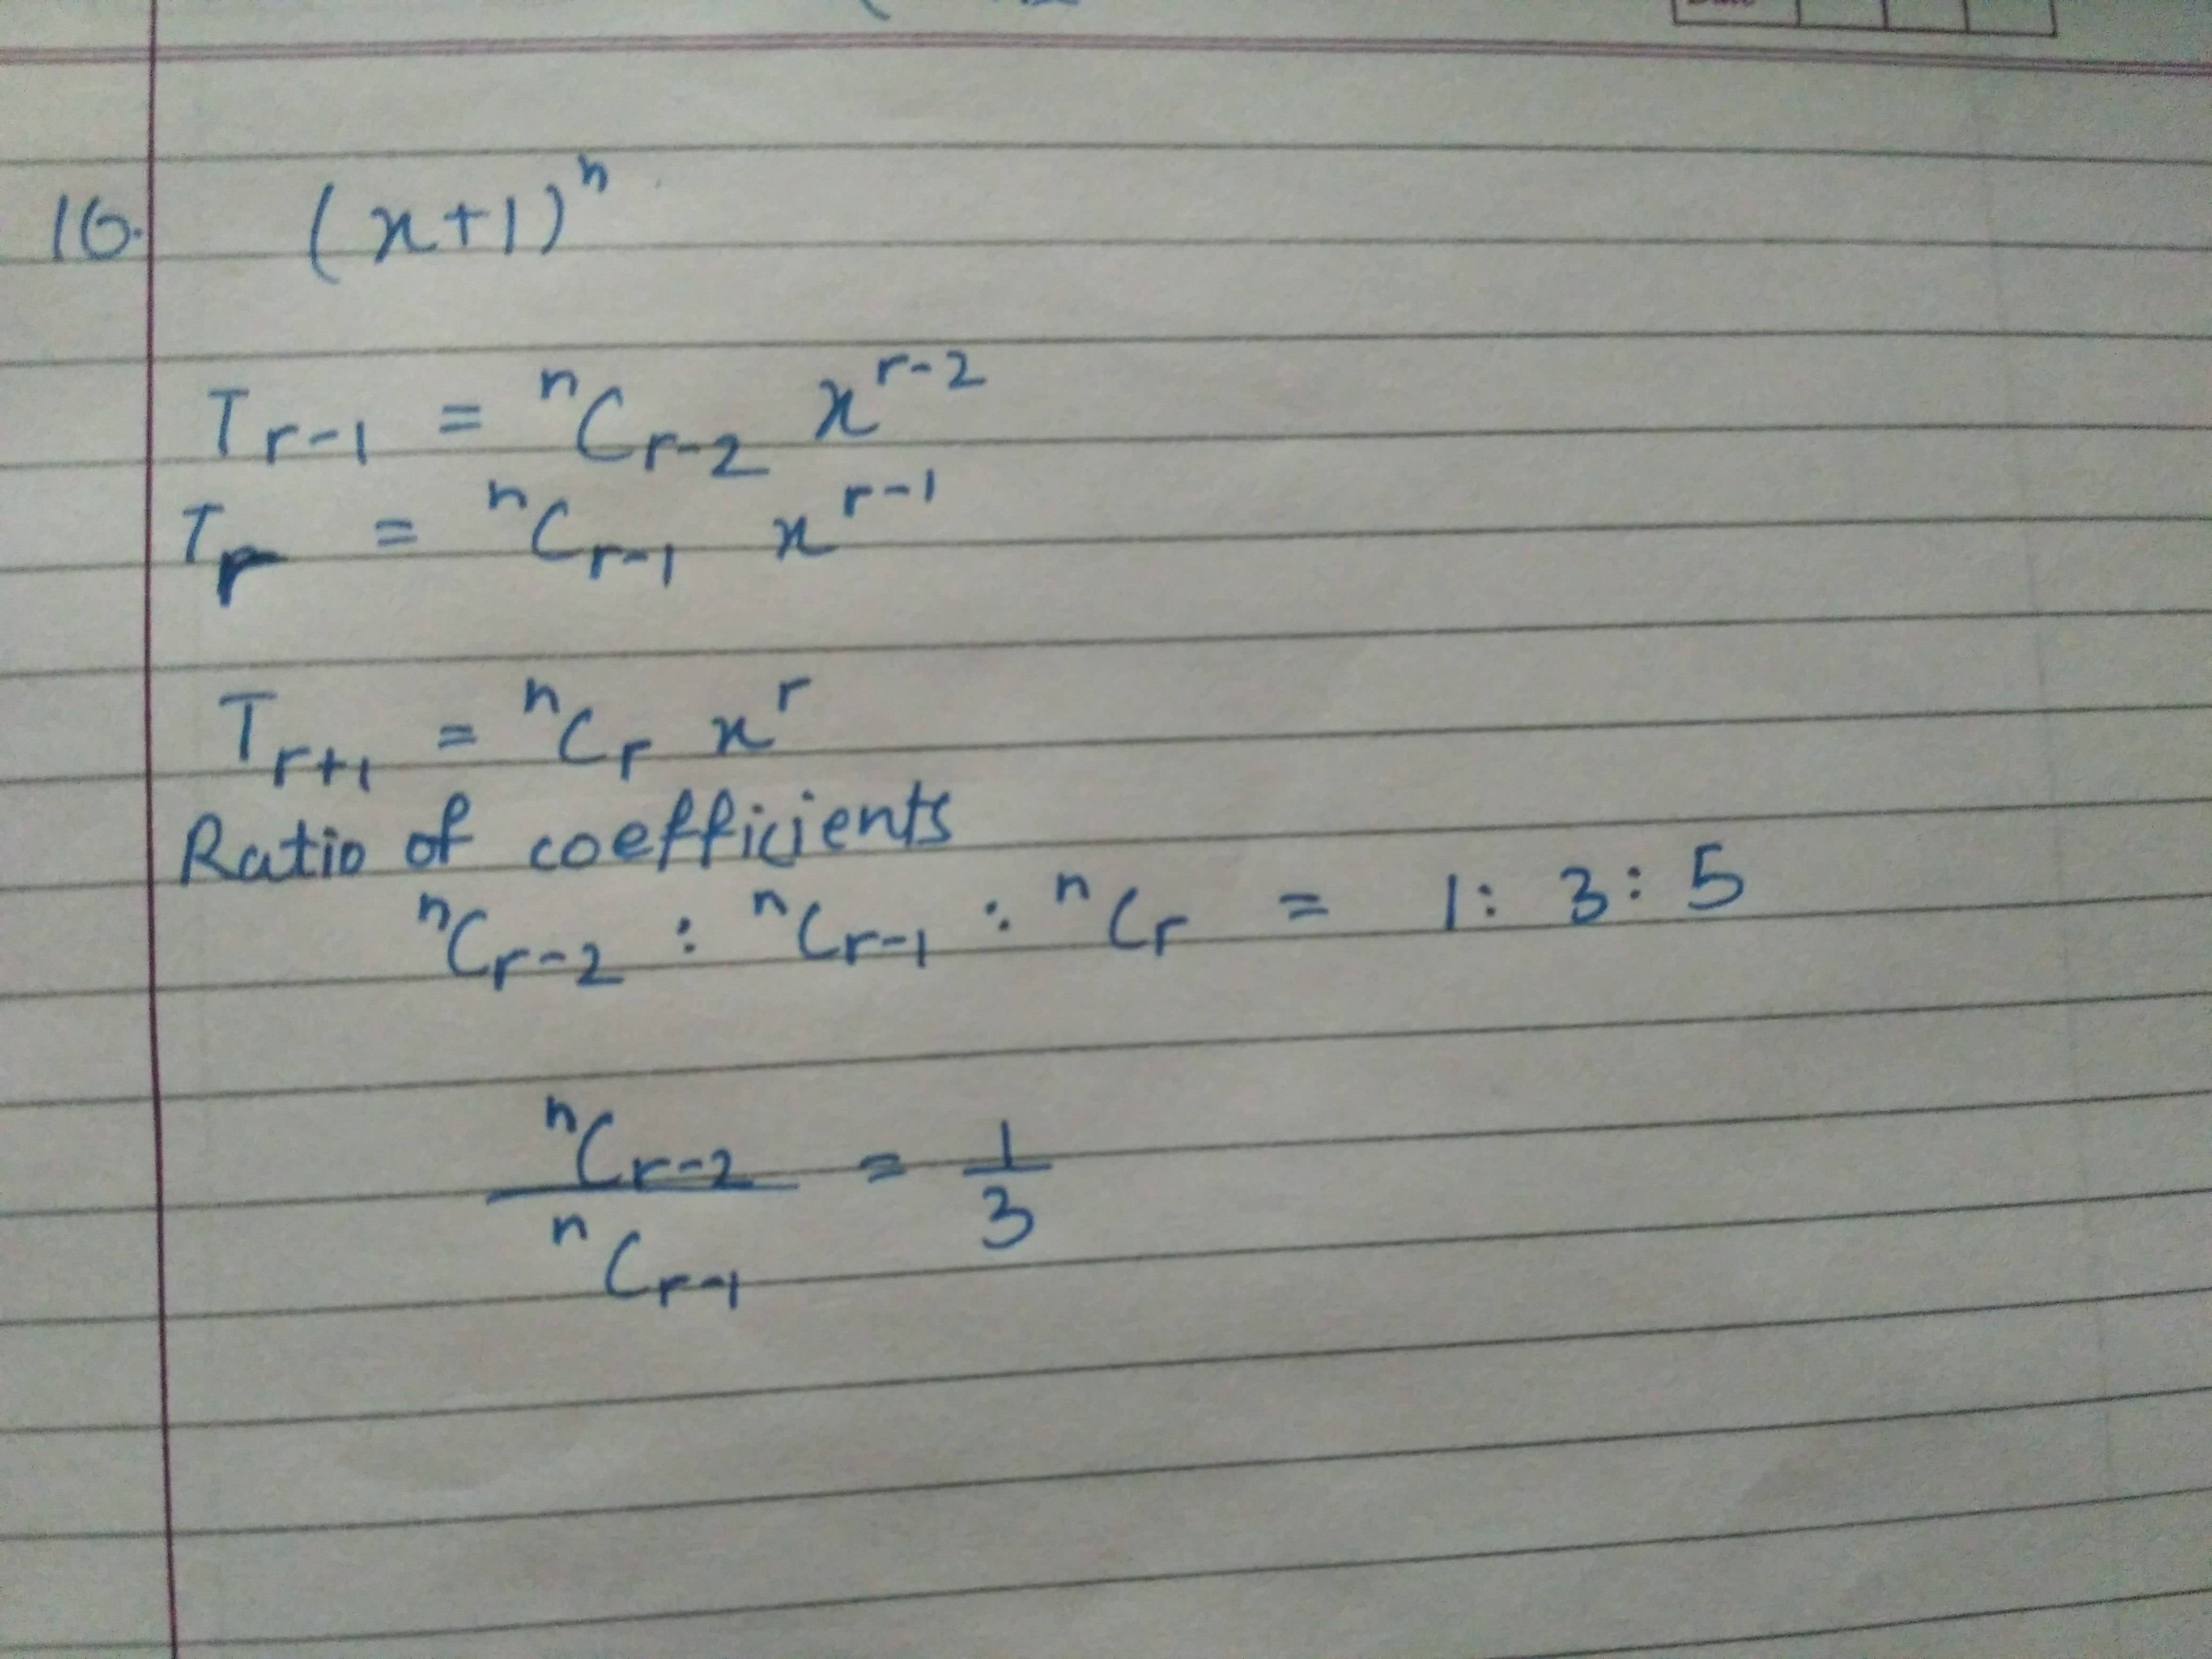 16. (x+1)ⁿ
T_{r-1} = ⁿC_{r-2} x^{r-2}
T_r = ⁿC_{r-1} x^{r-1}
T_{r+1} = ⁿC_r x^r
Ratio of coefficients
ⁿC_{r-2} : ⁿC_{r-1} : ⁿC_r = 1 : 3 : 5
ⁿC_{r-2} / ⁿC_{r-1} = 1/3